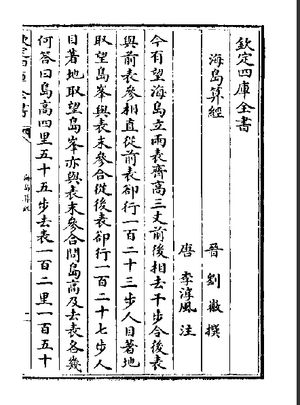 欽定四庫全書
海島算經
晉 劉徽 撰
唐 李淳風 注
今有望海島立兩表齊高三丈前後相去千步令後表
與前表參相直從前表却行一百二十三步人目著地
取望島峯與表末參合從後表却行一百二十七步人
目著地取望島峯亦與表末參合問島高及去表各幾
何答曰島高四里五十五步去表一百二里一百五十
欽定四庫全書
海島算經